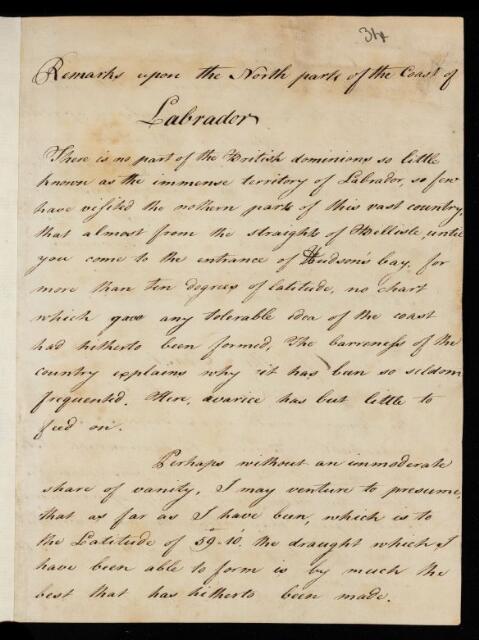 34
Remarks upon the North part of the Coast of
Labrador
There is no part of the British dominions so little
known as the immense territory of Labrador, so few
have visited the nothern part of this vast country,
that almost from the straights of Bellisle, until
you come to the entrance of Hudson's bay, for
more than ten degrees of latitude, no chart
which gave any tolerable idea of the coast
had hitherto been formed, The barreness of the
country explains why it has been so seldom
frequented. Here, avarice has but little to
feed on.
Perhaps without an immoderate
share of vanity, I may venture to presume,
that as far as I have been, which is to
the Latitude of 59-10. the draught which I
have been able to form is by much the
best that has hitherto been made.